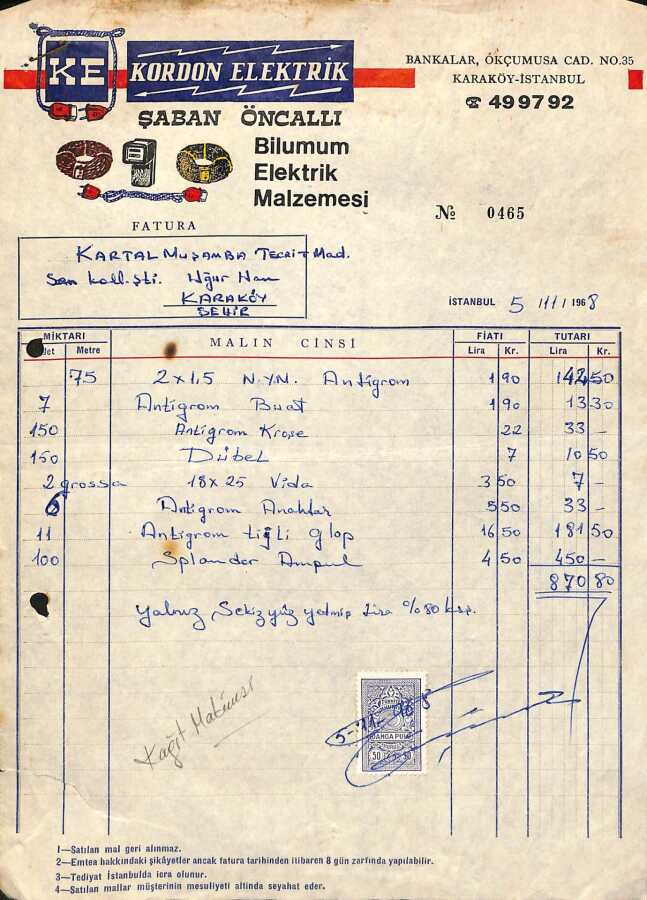 KE
KORDON ELEKTRİK
ŞABAN ÖNCALLI
Bilumum
Elektrik
Malzemesi
BANKALAR, ÖKÇUMUSA CAD. NO.35
KARAKÖY-İSTANBUL
☎ 49 97 92
№ 0465
FATURA
KARTAL MUŞAMBA TECRİT Mad.
San koll. şti. Uğur Han
KARAKÖY
ŞEHİR
İSTANBUL 5 /11/ 1968
MİKTARI MALIN CİNSİ FİATI TUTARI
det Metre Lira Kr. Lira Kr.
75 2x1,5 N.Y.N. Antigrom 1 90 142 50
7 Antigrom Buat 1 90 13 30
150 Antigrom Kroşe 22 33 —
150 Dübel 7 10 50
2 grossa 18x25 Vida 3 50 7 —
6 Antigrom Anahtar 5 50 33 —
11 Antigrom tiğli glop 16 50 181 50
100 Splandor Ampul 4 50 450 —
870 80
Yalnız Sekizyüz yetmiş Lira %80 krş.
Kağıt Makinası
5-11-968
DAMGA PULU
50
1—Satılan mal geri alınmaz.
2—Emtea hakkındaki şikâyetler ancak fatura tarihinden itibaren 8 gün zarfında yapılabilir.
3—Tediyat İstanbulda icra olunur.
4—Satılan mallar müşterinin mesuliyeti altında seyahat eder.